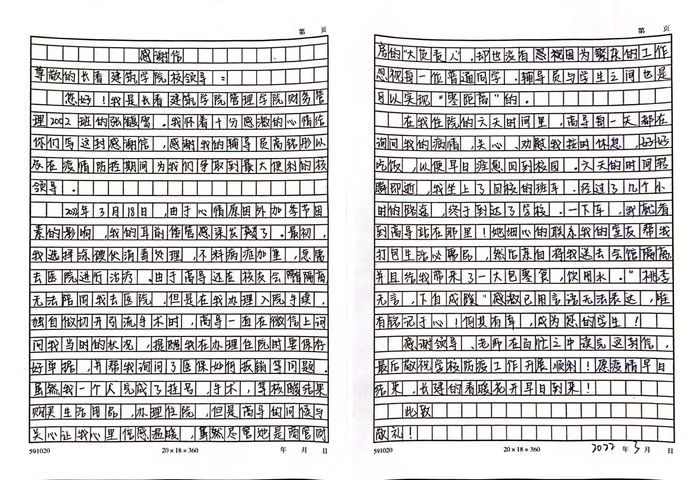 第 页
感谢信
尊敬的长春建筑学院校领导：
您好！我是长春建筑学院管理学院财务管
理2002班的张馥鸾。我怀着十分感激的心情给
你们写这封感谢信，感谢我的辅导员高铭彤以
及在疫情防控期间为我们争取到最大便利的校
领导。
2022年3月18日，由于心情原因外加季节因
素的影响，我的耳前瘘管感染发频了。最初，
我选择冷硬伏消毒处理，不料病症加重，急需
去医院进行治疗。由于高导还在校友会馆隔离
无法陪同我去医院，但是在我办理入院手续，
独自做切开引流手术时，高导一直在微信上询
问我当时的状况，提醒我在办理住院时要保存
好单据，并帮我询问了医保如何报销等问题。
虽然我一个人完成了挂号，手术，等核酸结果
购买生活用品，办理住院，但是高导的问候与
关心让我心里倍感温暖，虽然尽管她是商管财
591020
20×18=360
年 月 日
第 页
房的“大负责人”，却也没有忽视因为繁杂的工作
忽视每一位普通同学。辅导员与学生之间也是
可以实现“零距离”的。
在我住院的六天时间里，高导每一天都在
询问我的病情，关心、劝慰我按时休息，好好
吃饭，以便早日痊愈回到校园。六天的时间转
瞬即逝，我坐上了回校的班车。经过了几个小
时的路途，终于到达了学校。一下车，我就看
到高导站在那里！她细心的联系我的室友帮我
打包生活必需品，然后亲自将我送去会馆隔离
并且给我带来了一大包零食，饮用水。“桃李
无言，下自成蹊”感激已用言语无法表达，唯
有铭记于心！何其有幸，成为您的学生！
感谢领导、老师在百忙之中读完这封信，
最后敬祝学校防疫工作开展顺利！愿疫情早日
结束，长建的春暖花开早日到来！
此致
敬礼！
591020
20×18=360
2022年3月 日